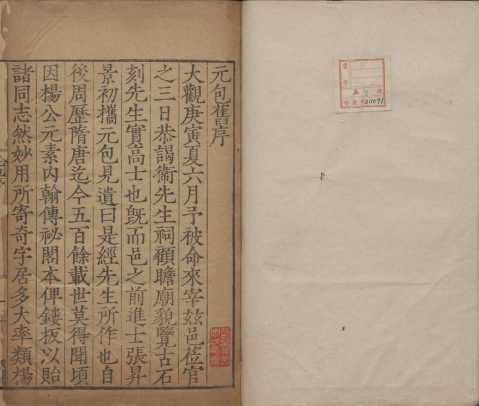 元包舊序
大觀庚寅夏六月予被命來宰茲邑莅官
之三日恭謁衛先生祠顧瞻廟貌覽古石
刻先生實高士也既而邑之前進士張昇
景初攜元包見遺曰是經先生所作也自
後周歷隋唐迄今五百餘載世莫得聞頃
因楊公元素內翰傳祕閣本俾鏤板以貽
諸同志然妙用所寄奇字居多大率類揚